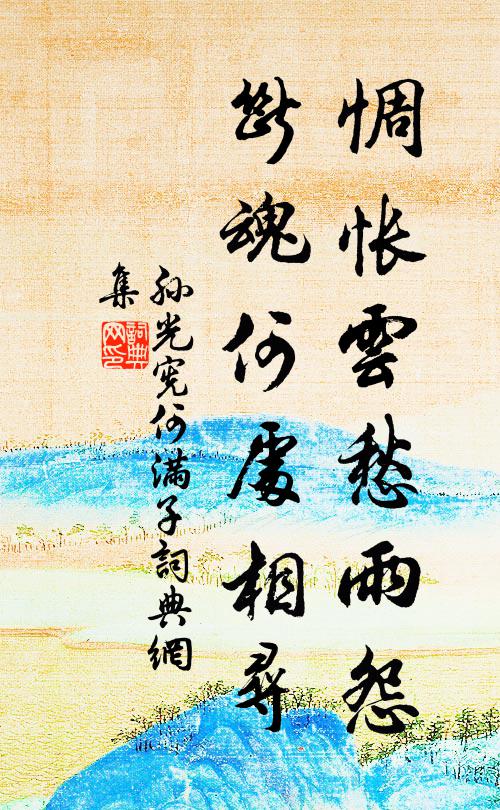 惆悵雲愁雨怨
斷魂何處相尋
孫光憲何滿子詞典網
集
詞典
网印